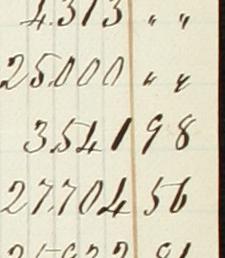 4.313 " "
25.000 " "
3.541 98
27.704 56